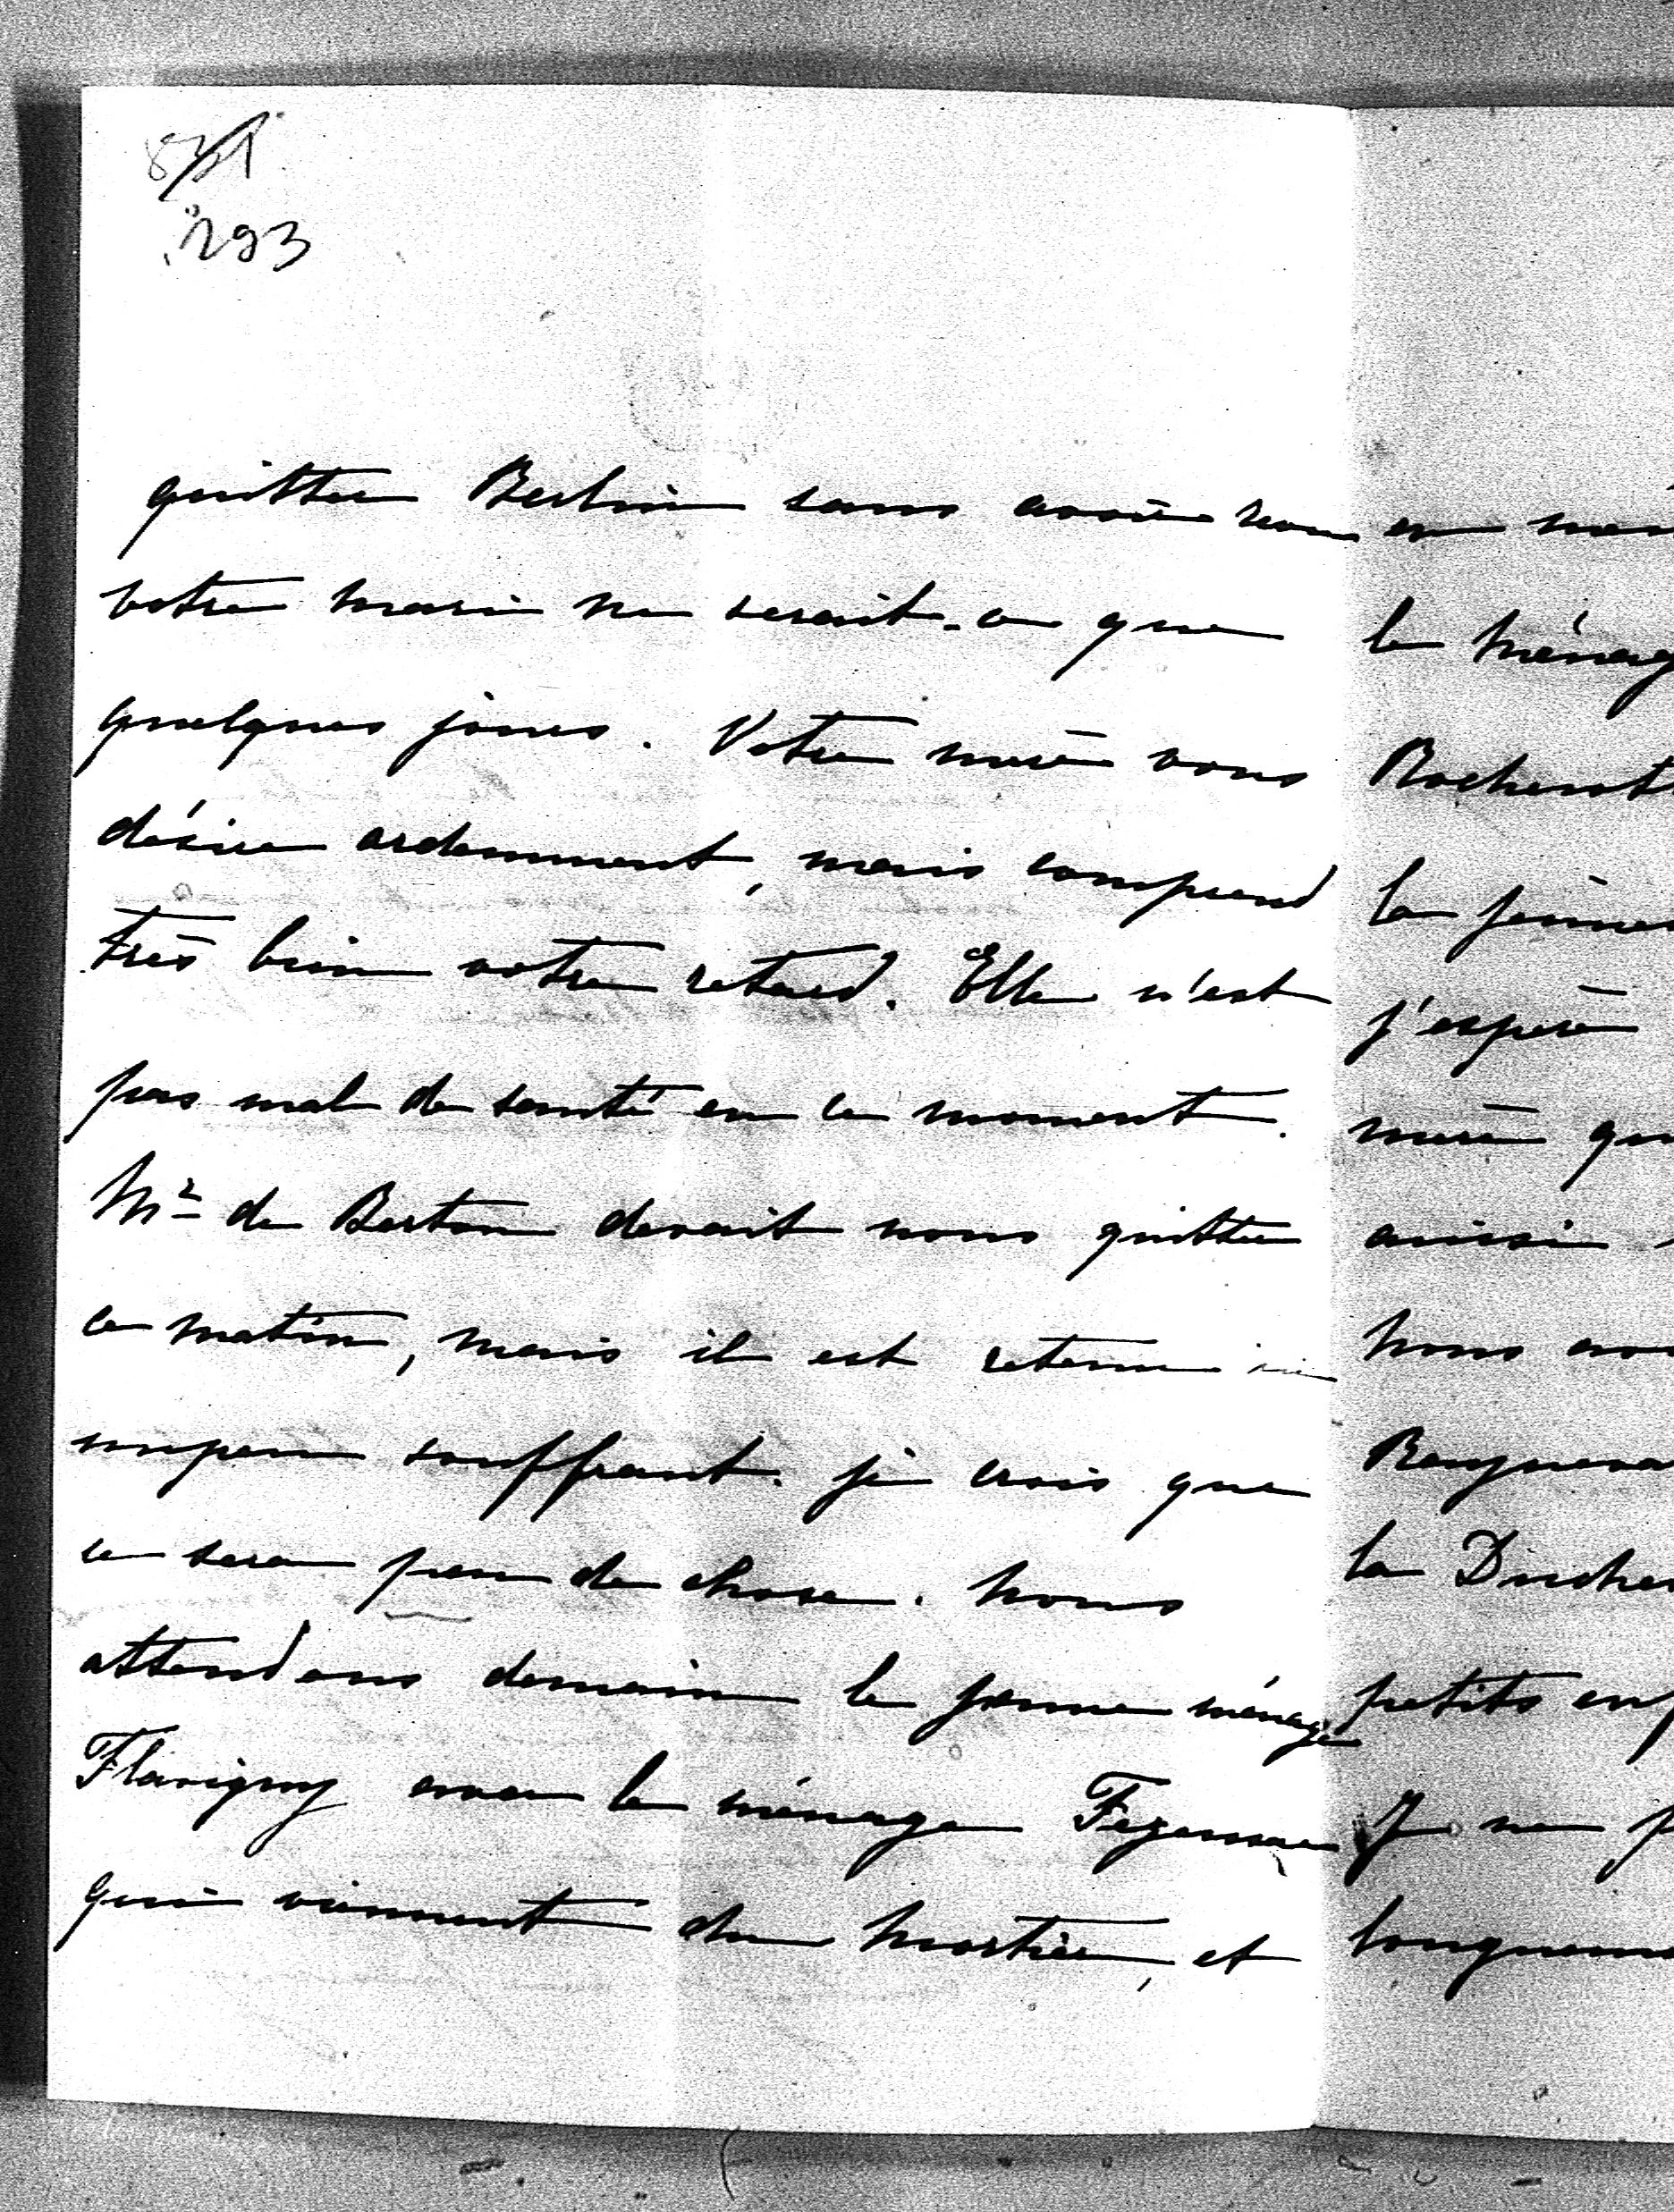 831
293
quitter Berlin sans avoir revu
votre mari ne serait-ce que
quelques jours. Votre mère vous
désire ardemment, mais comprend
très bien votre retard. Elle n'est
pas mal de santé en ce moment.
Mr de Bertou devait nous quitter
ce matin, mais il est retenu ici
unpeu souffrant. je crois que
ce sera peu de chose. Nous
attendons demain le jeune ménage
Flavigny avec le ménage Fezensac
qui viennent du Mortier, et
en
le ménag
Rochecot
la
j'espère
mère qu
ainsi
Nous
la Duches
petits enf
Je ne p
longueme